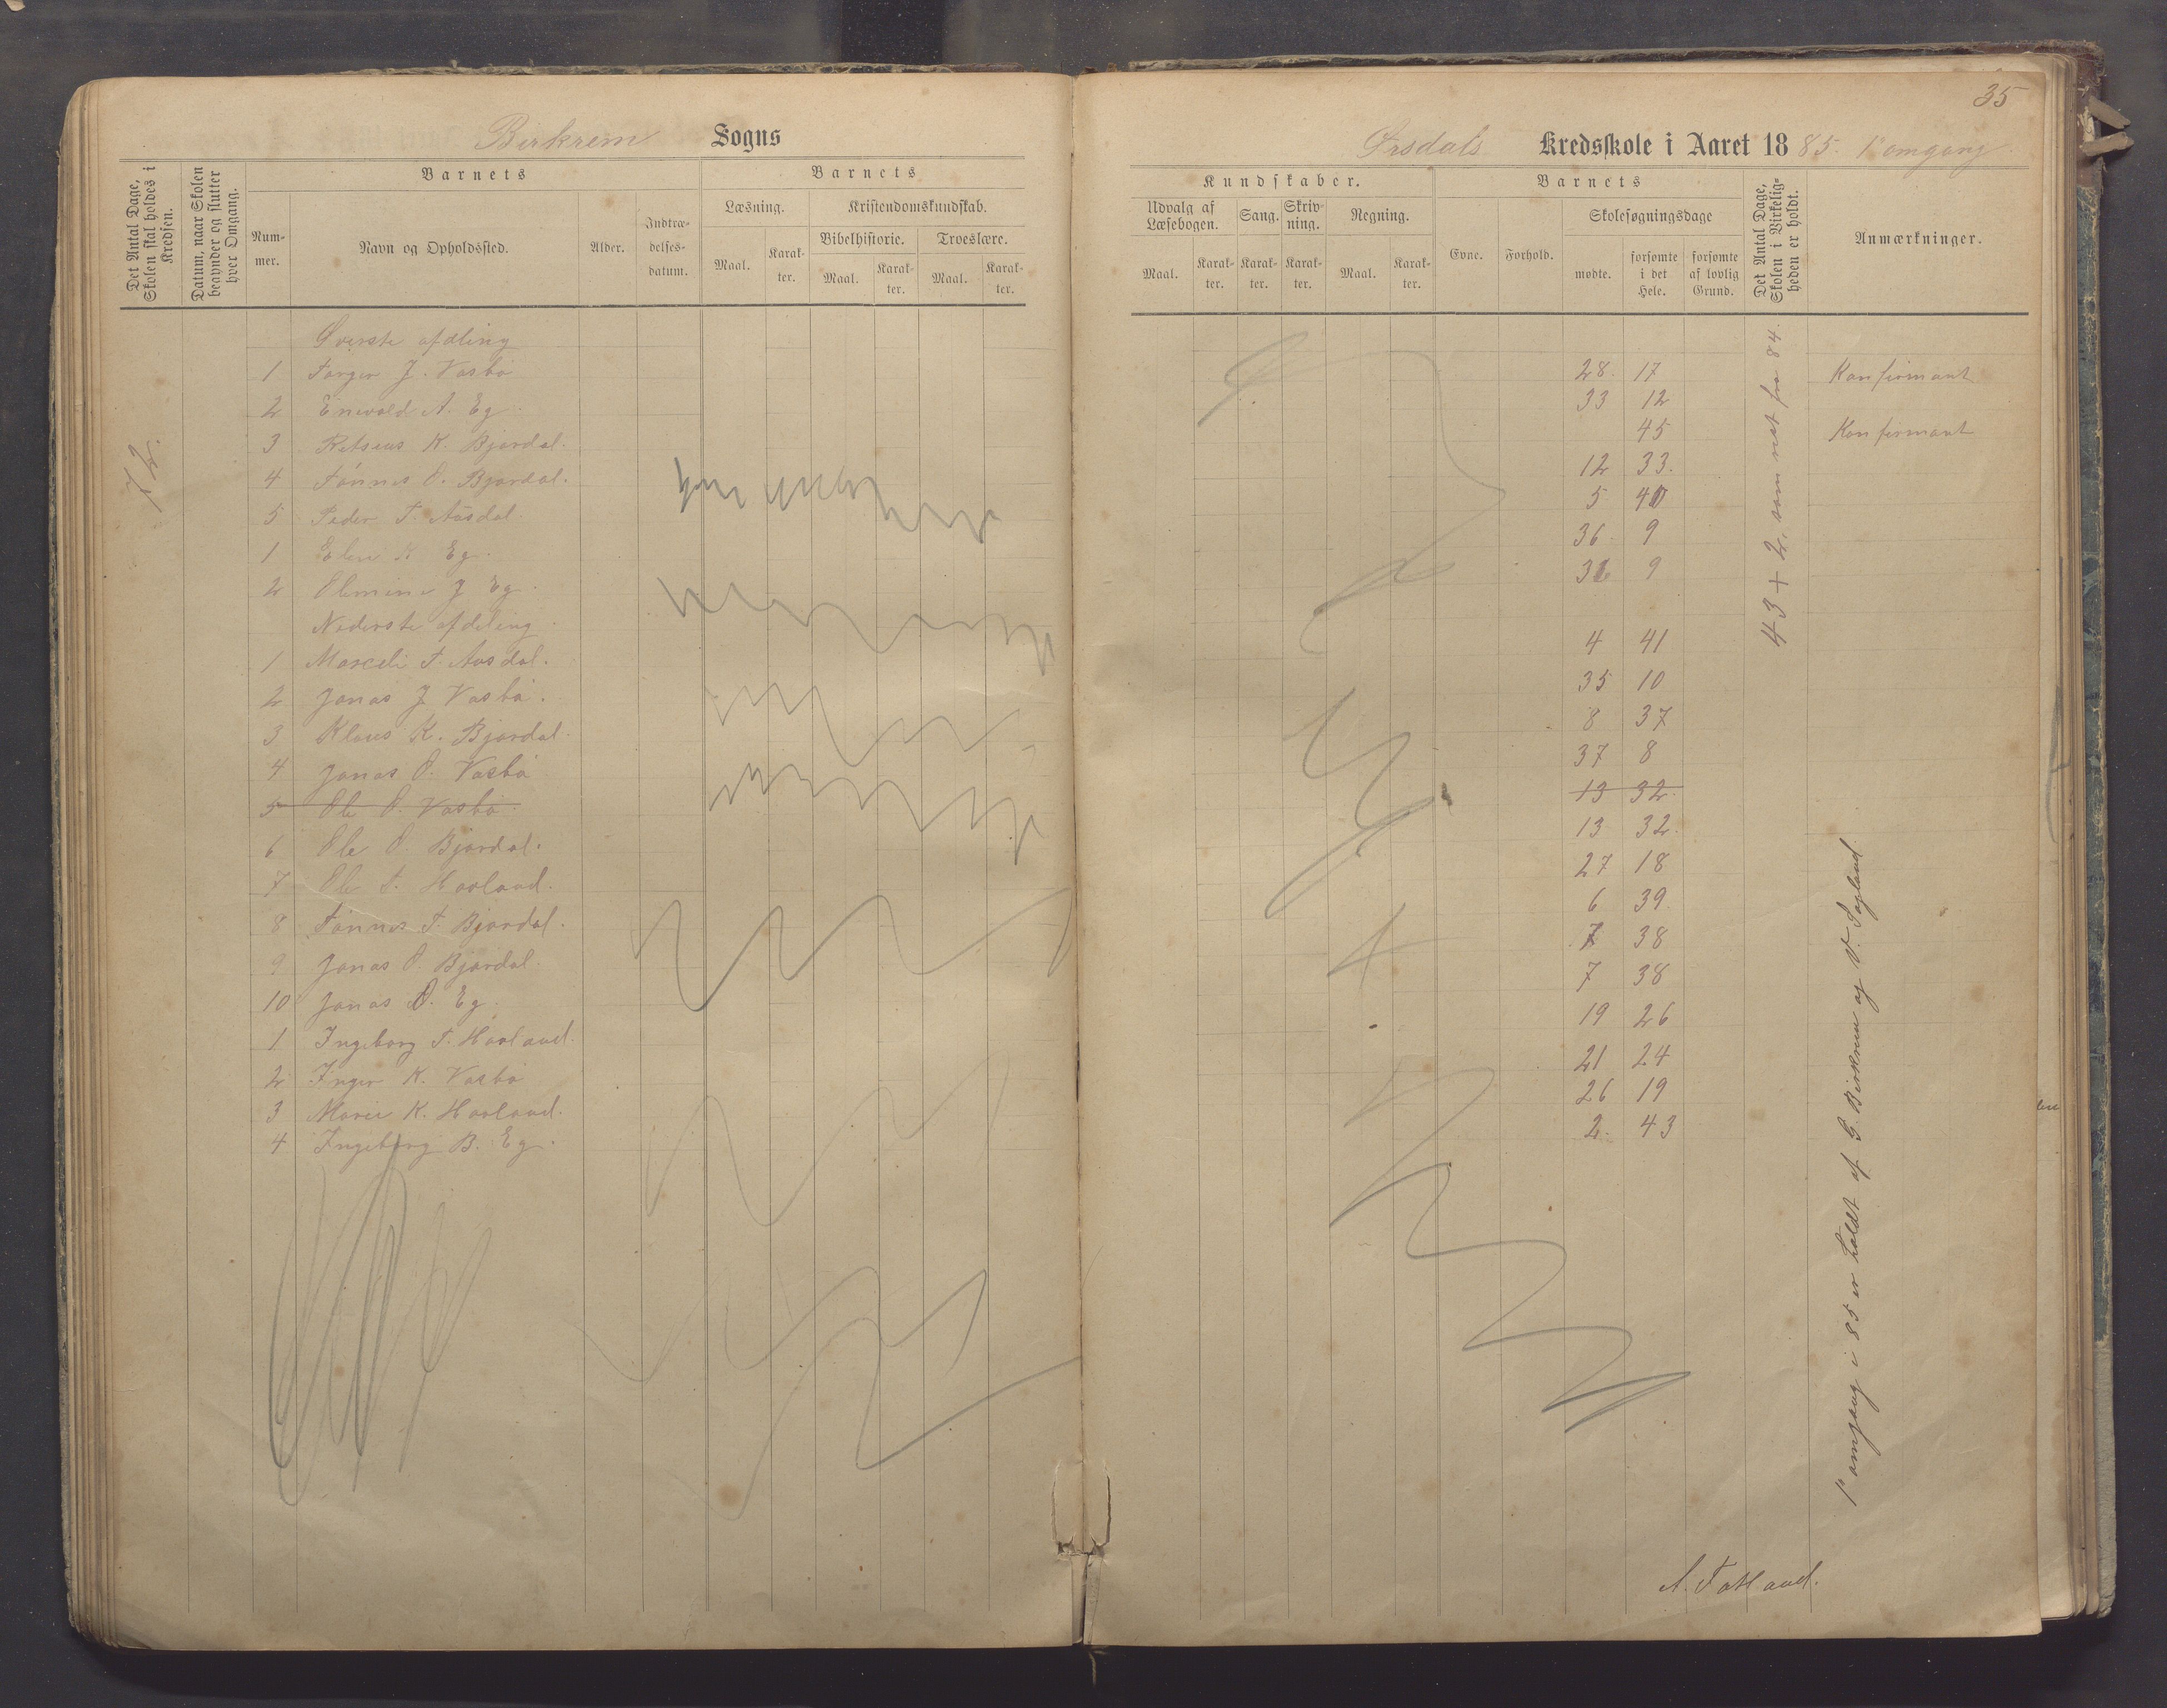 35
Birkrem Sogns
Ørsdals Kredsskole i Aaret 1885. 1ste omgang
Det Antal Dage, Skolen skal holdes i Kredsen.
Datum, naar Skolen begynder og slutter hver Omgang.
Barnets
Nummer.
Navn og Opholdssted.
Alder.
Indtrædelses-datum.
Barnets
Læsning.
Kristendomskundskab.
Bibelhistorie.
Troeslære.
Maal.
Karakter.
Maal.
Karakter.
Maal.
Karakter.
Kundskaber.
Udvalg af Læsebogen.
Sang.
Skrivning.
Regning.
Maal.
Karakter.
Karakter.
Karakter.
Maal.
Karakter.
Barnets
Evne.
Forhold.
Skolesøgningsdage
mødte.
forsømte i det Hele.
forsømte af lovlig Grund.
Det Antal Dage, Skolen i Virkeligheden er holdt.
Anmærkninger.
72.
Øverste afdeling
1 Torger J. Vasbø 28. 17 Konfirmant
2 Enevold A. Eg. 33 12
3 Retseus K. Bjordal. 45 Konfirmant
4 Tønnes O. Bjordal. 12 33.
5 Peder T. Aasdal. 5 40
1 Elen K. Eg. 36. 9
2 Olemine J Eg. 36 9
Nederste afdeling.
1 Marceli T. Aasdal. 4 41
2 Jonas J Vasbø. 35 10
3 Klaus K. Bjordal. 8 37
4 Jonas O. Vasbø 37 8
5 Ole O. Vasbø. 13 32.
6 Ole O. Bjordal. 13 32.
7 Ole T. Hovland. 27 18
8 Tønnes T. Bjordal. 6 39.
9 Jonas O. Bjordal. 7 38
10 Jonas O. Eg. 7 38
1 Ingeborg T. Hovland. 19 26
2 Inger K. Vasbø 21 24
3 Marie K. Hovland. 26 19
4 Ingeborg B. Eg. 2. 43
43 + 2, som nest fra 84.
1ste omgang i 85 er holdt af G. Birkrem og V. Sagland
A. Fotland.